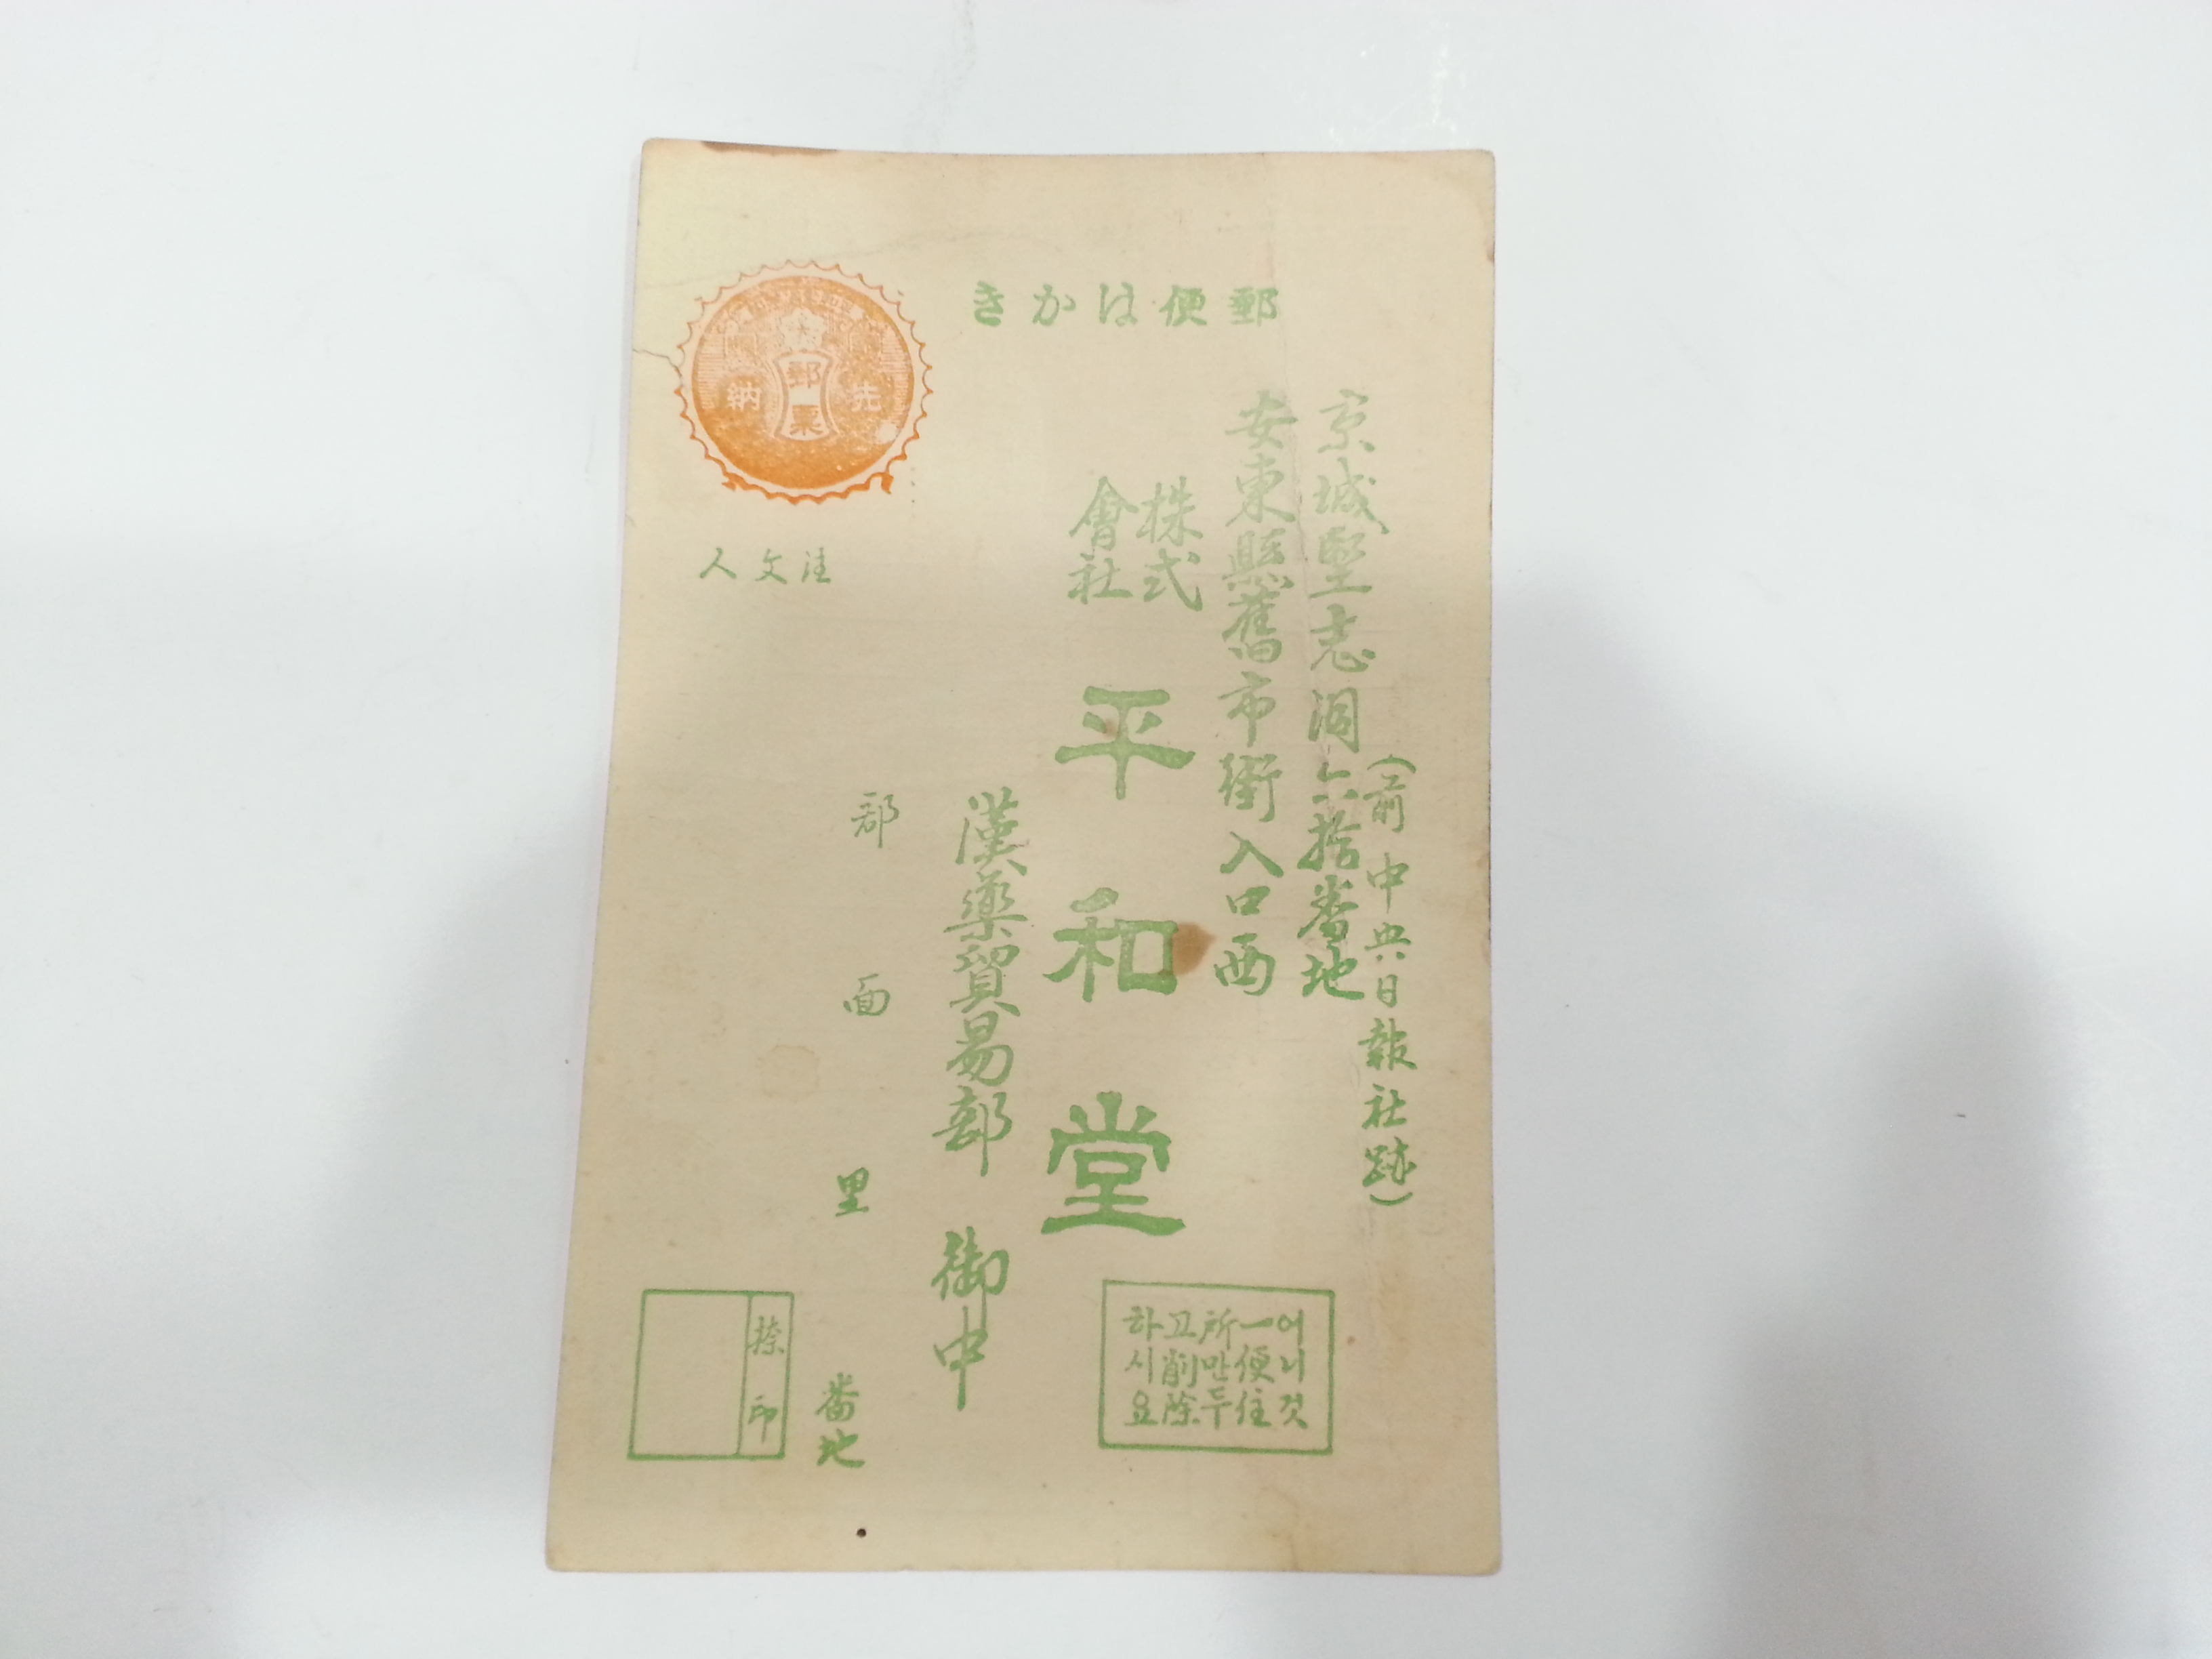 郵便はかき
郵票
先納
(前中央日報社跡)
京城堅志洞六拾番地
安東縣舊市街入口西
株式
會社
平和堂
漢藥貿易部 御中
注文人
郡 面 里 番地
捺印
어니것
一便住
所만두
고削除
하시요